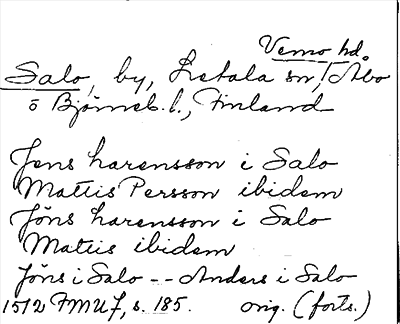 Vemo hd.
Salo, by, Letala sn, Åbo
o Björneb. l., Finland
Jens Larensson i Salo
Mattis Persson ibidem
Jöns Larensson i Salo
Mattis ibidem
Jöns i Salo -- Anders i Salo
1512 FMU 7, s. 185. orig. (forts.)